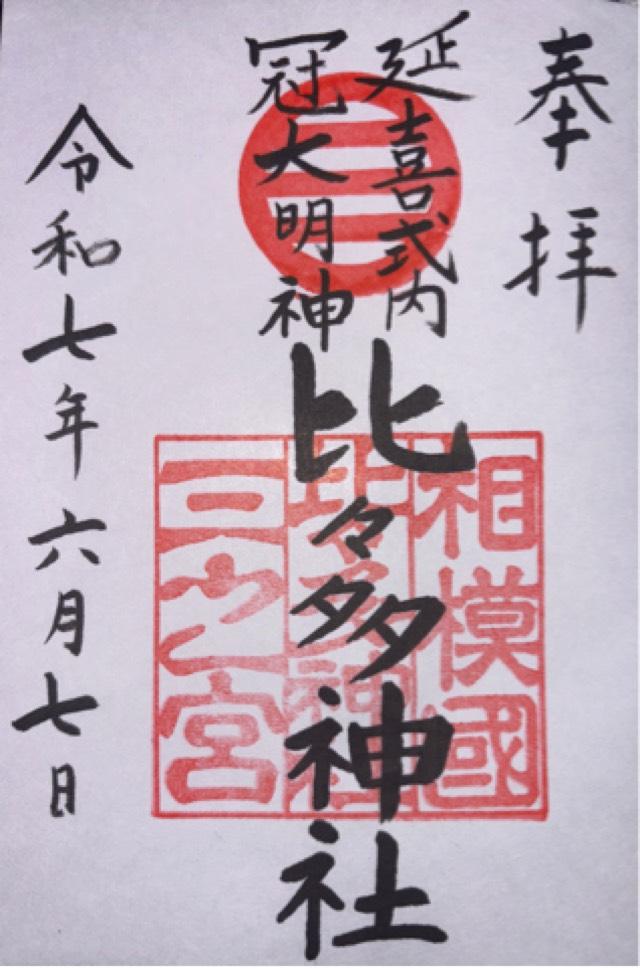 奉拝
延喜式内
冠大明神
比々多神社
相模國
比々多神社
三之宮
令和七年六月七日